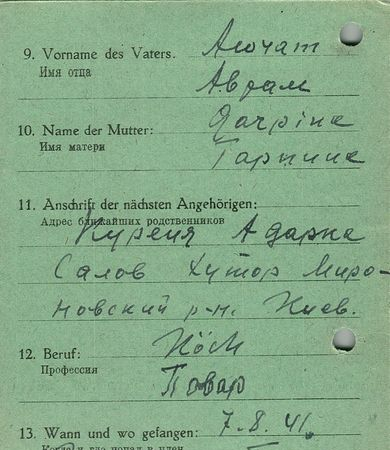 9. Vorname des Vaters.
Имя отца
Аврам
10. Name der Mutter:
Имя матери
11. Anschrift der nächsten Angehörigen:
Адрес ближайших родственников
Салов Хутор Миро-
новский р-н. Киев.
12. Beruf: Köch
Профессия
Повар
13. Wann und wo gefangen: 7.8.41.
Когда и где попал в плен